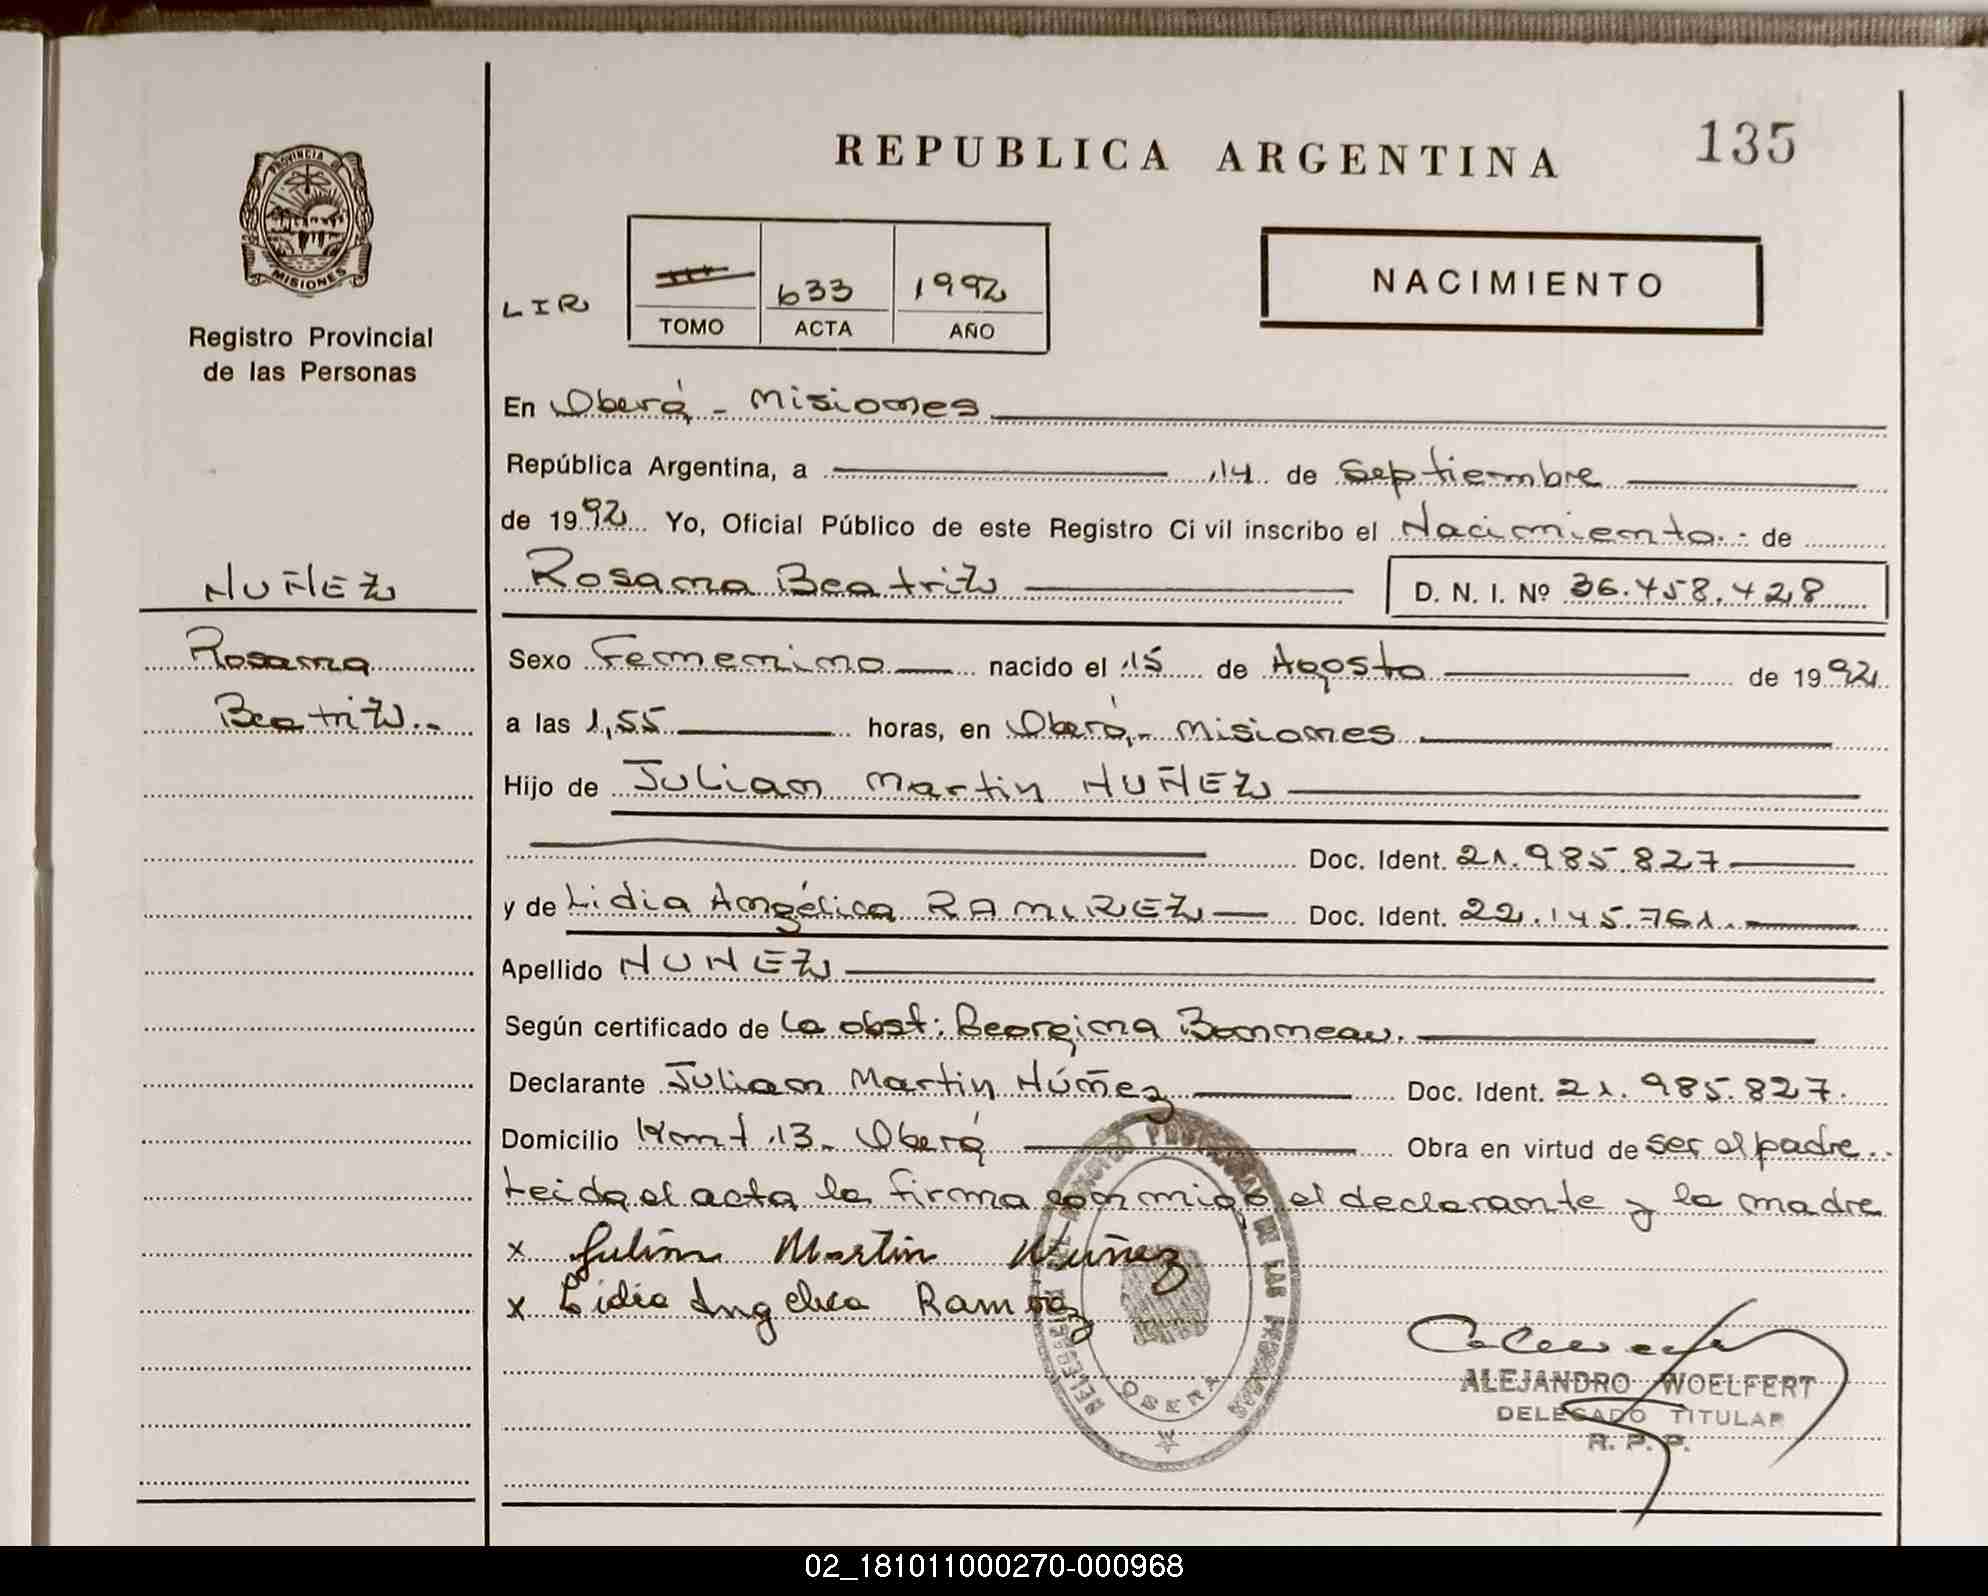 REPUBLICA ARGENTINA
135
PROVINCIA DE
MISIONES
Registro Provincial
de las Personas
LIR
633
1992
TOMO
ACTA
AÑO
NACIMIENTO
En Oberá - Misiones
República Argentina, a 14 de Septiembre
de 1992 Yo, Oficial Público de este Registro Civil inscribo el Nacimiento.- de
NUÑEZ
Rosana Beatriz
D. N. I. Nº 36.458.428
Rosana
Beatriz..
Sexo Femenino nacido el 15 de Agosto de 1992
a las 1,55 horas, en Oberá,- Misiones
Hijo de Julian Martin NUÑEZ
Doc. Ident. 21.985.827
y de Lidia Angélica RAMIREZ Doc. Ident. 22.145.761.
Apellido NUÑEZ
Según certificado de la obst: Georgina Bonneau.
Declarante Julian Martin Núñez Doc. Ident. 21.985.827.
Domicilio Oberá Obra en virtud de ser el padre..
Leida el acta la firma conmigo el declarante y la madre
x Julián Martin Nuñez
x Lidia Angelica Ramirez
OBERA
ALEJANDRO WOELFERT
DELEGADO TITULAR
R. P. P.
02_181011000270-000968